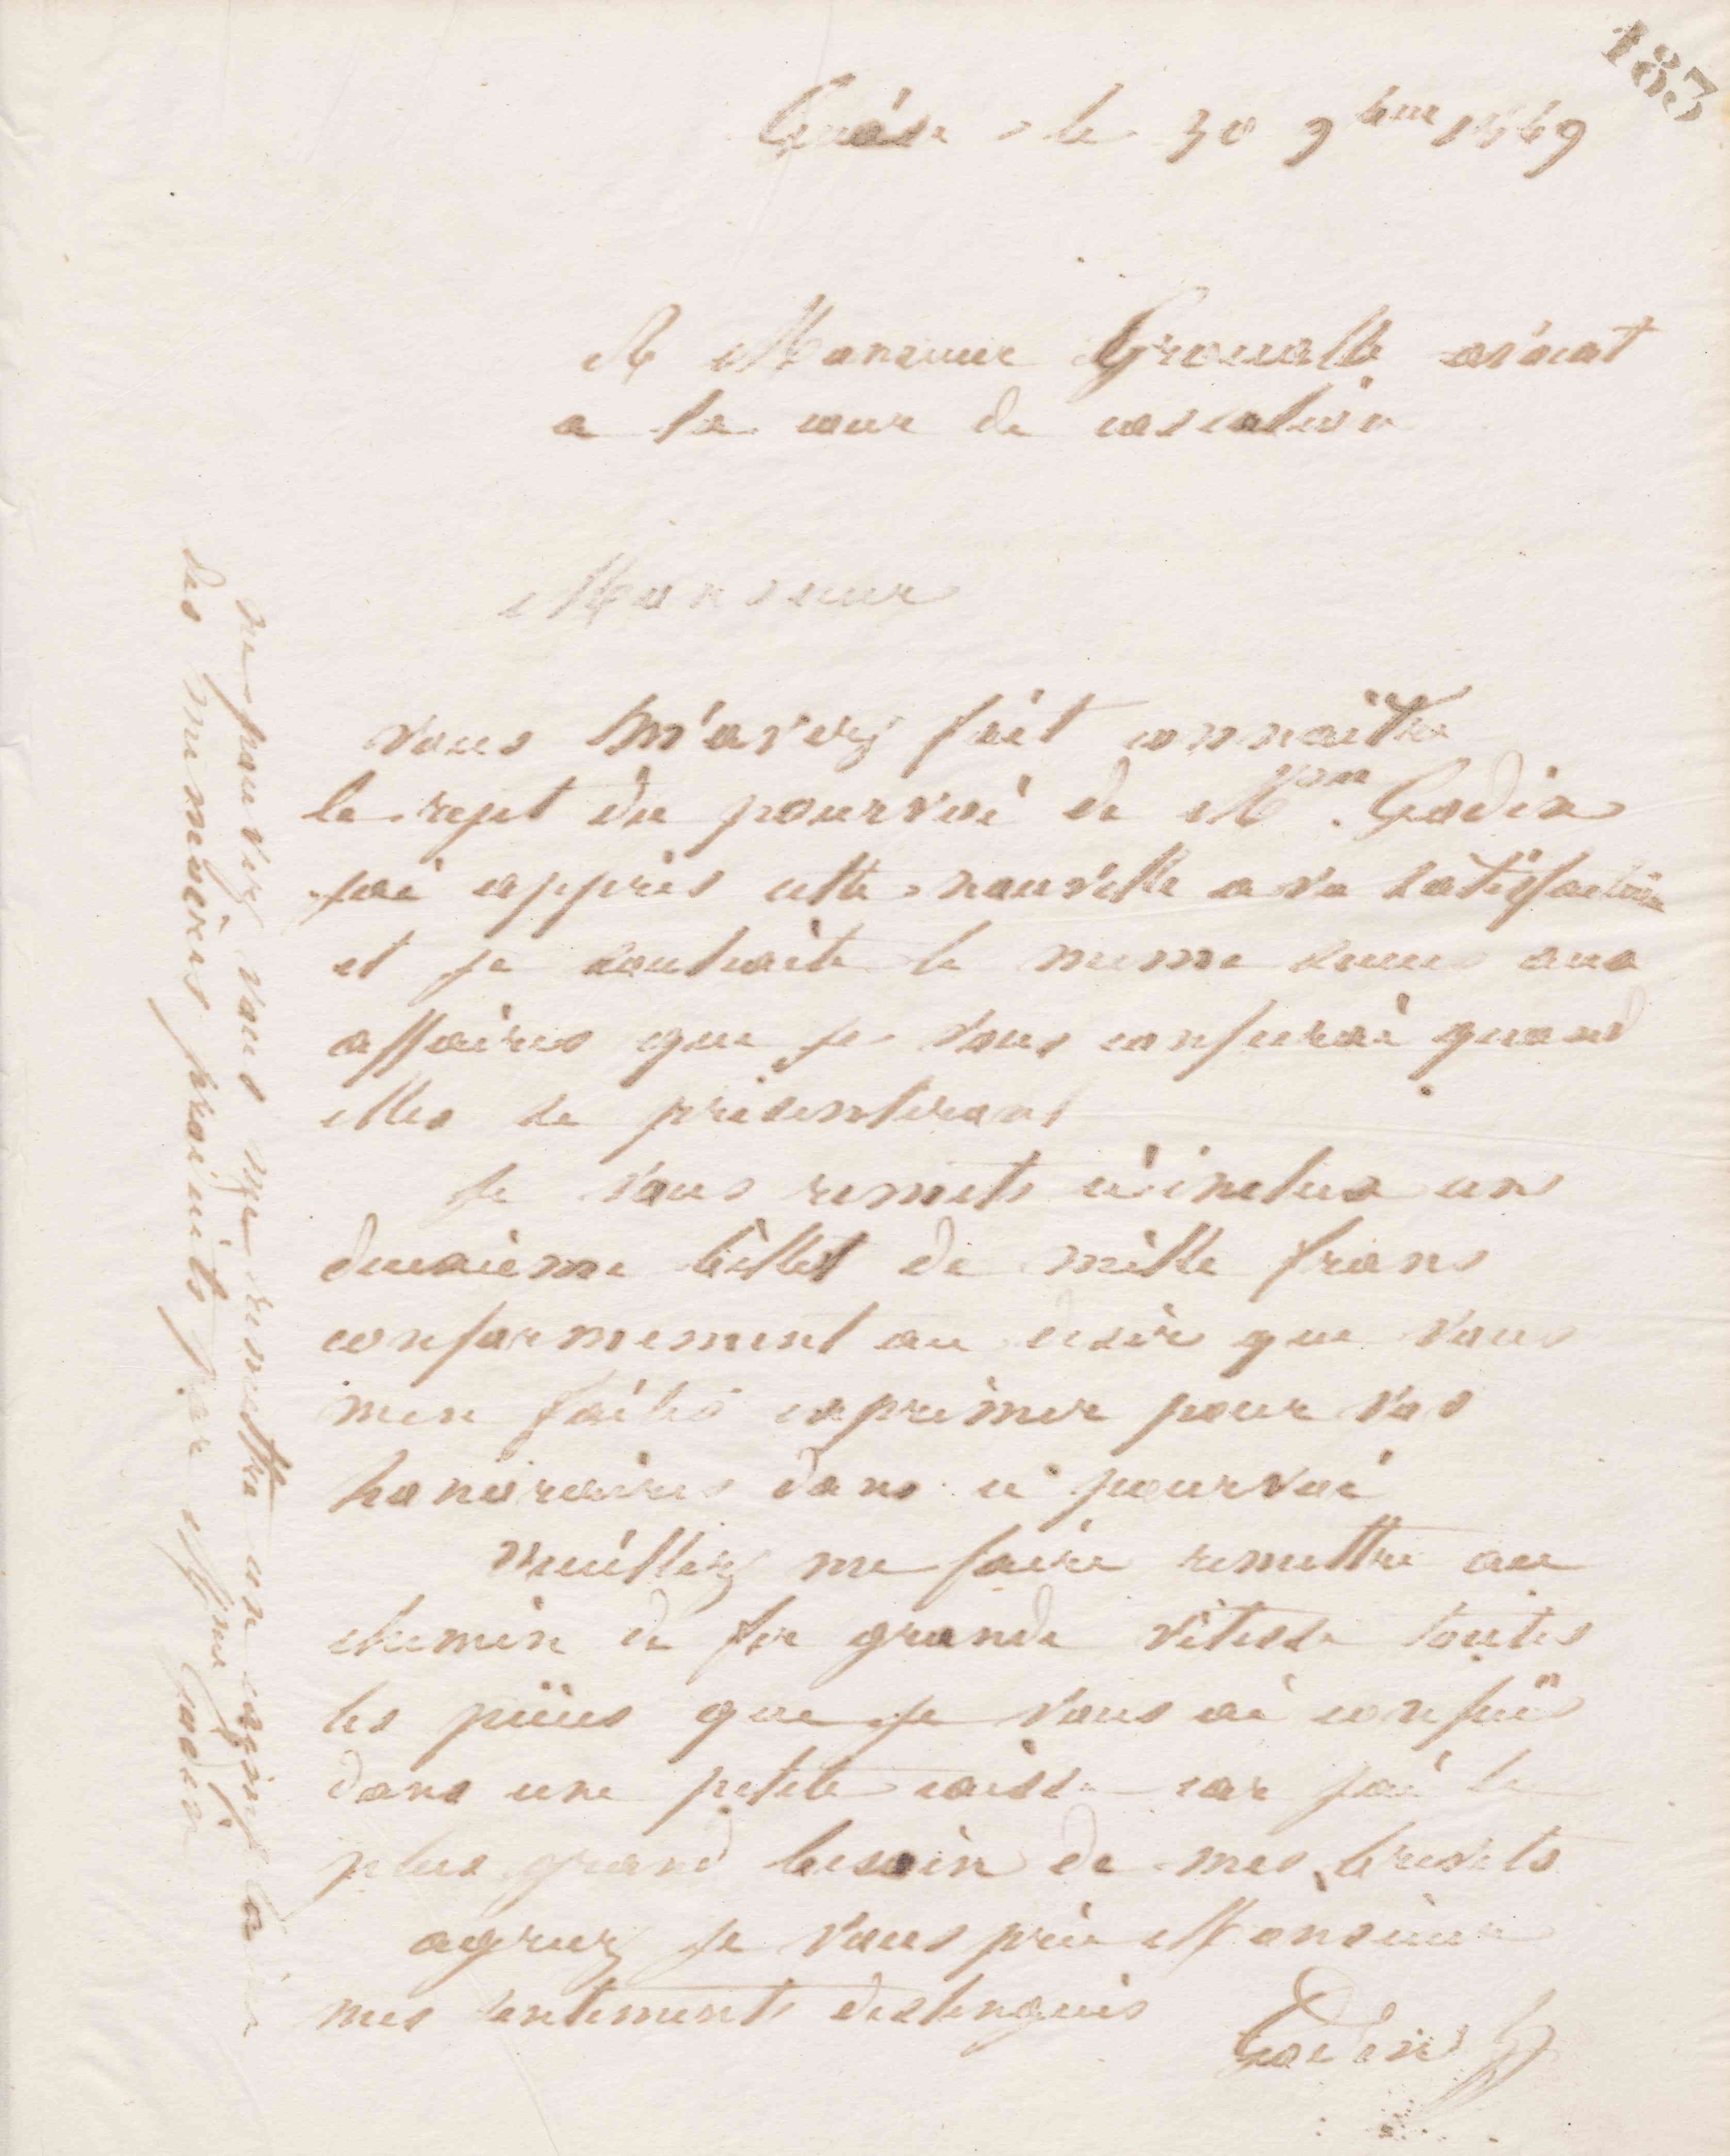 183
Guise le 30 9bre 1869
A Monsieur Groualle avocat
a la cour de cassation
Monsieur
vous m'avez fait connaitre
le rejet du pourvoi de Mme Godin
jai appris cette nouvelle avec satisfaction
et je souhaite le meme succes aux
affaires que je vous confierai quand
elles se présenteront
Je vous remets ci inclus un
deuxieme billet de mille francs
conformement au desir que vous
men faites exprimer pour vos
honoraires dans ce pourvoi
veuillez me faire remettre au
chemin de fer grande vitesse toutes
les pieces que je vous ai confiées
dans une petite caisse car jai le
plus grand besoin de mes brevets
agreez je vous prie Monsieur
mes sentiments distingués
Godin
ne pouvez vous me remettre un
des mémoires produits par Mme Godin